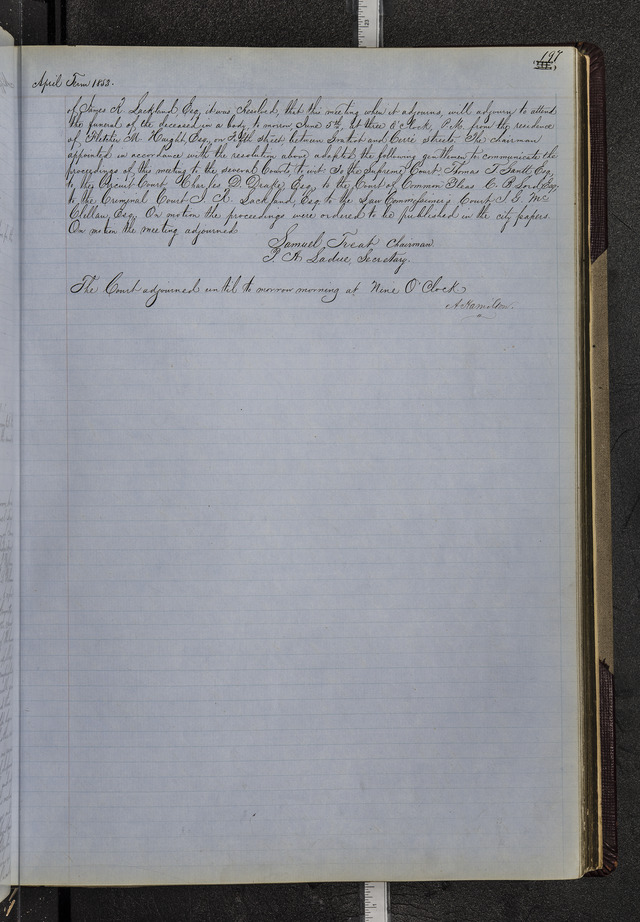 197
April Term 1853.
of James R. Lackland Esq, it was Resolved, that this meeting when it adjourns, will adjourn to attend
the funeral of the deceased in a body to morrow June 5th, at three O'Clock, P.M. from the residence
of Fletcher M. Haight, Esq, on Fifth street between and Cerré streets. The chairman
appointed in accordance with the resolution above adopted the following gentlemen to communicate the
proceedings of this meeting to the several Courts, to wit: To the Supreme Court, Thomas T. Gantt Esq,
to the Circuit Court Charles D. Drake Esq, to the Court of Common Pleas C. B. Lord, Esq,
to the Criminal Court J. R. Lackland, Esq, to the Law Commissioners Court, J. G. Mc
Clellan, Esq. On motion the proceedings were ordered to be published in the city papers.
On motion the meeting adjourned
Samuel Treat Chairman
P. A. Ladue, Secretary.
The Court adjourned until to morrow morning at Nine O'Clock
A. Hamilton.